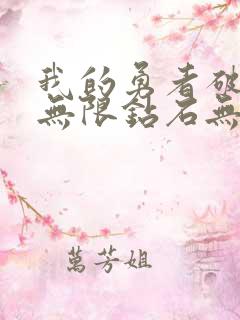 我的勇者破
無限鈷石無
萬芳姐